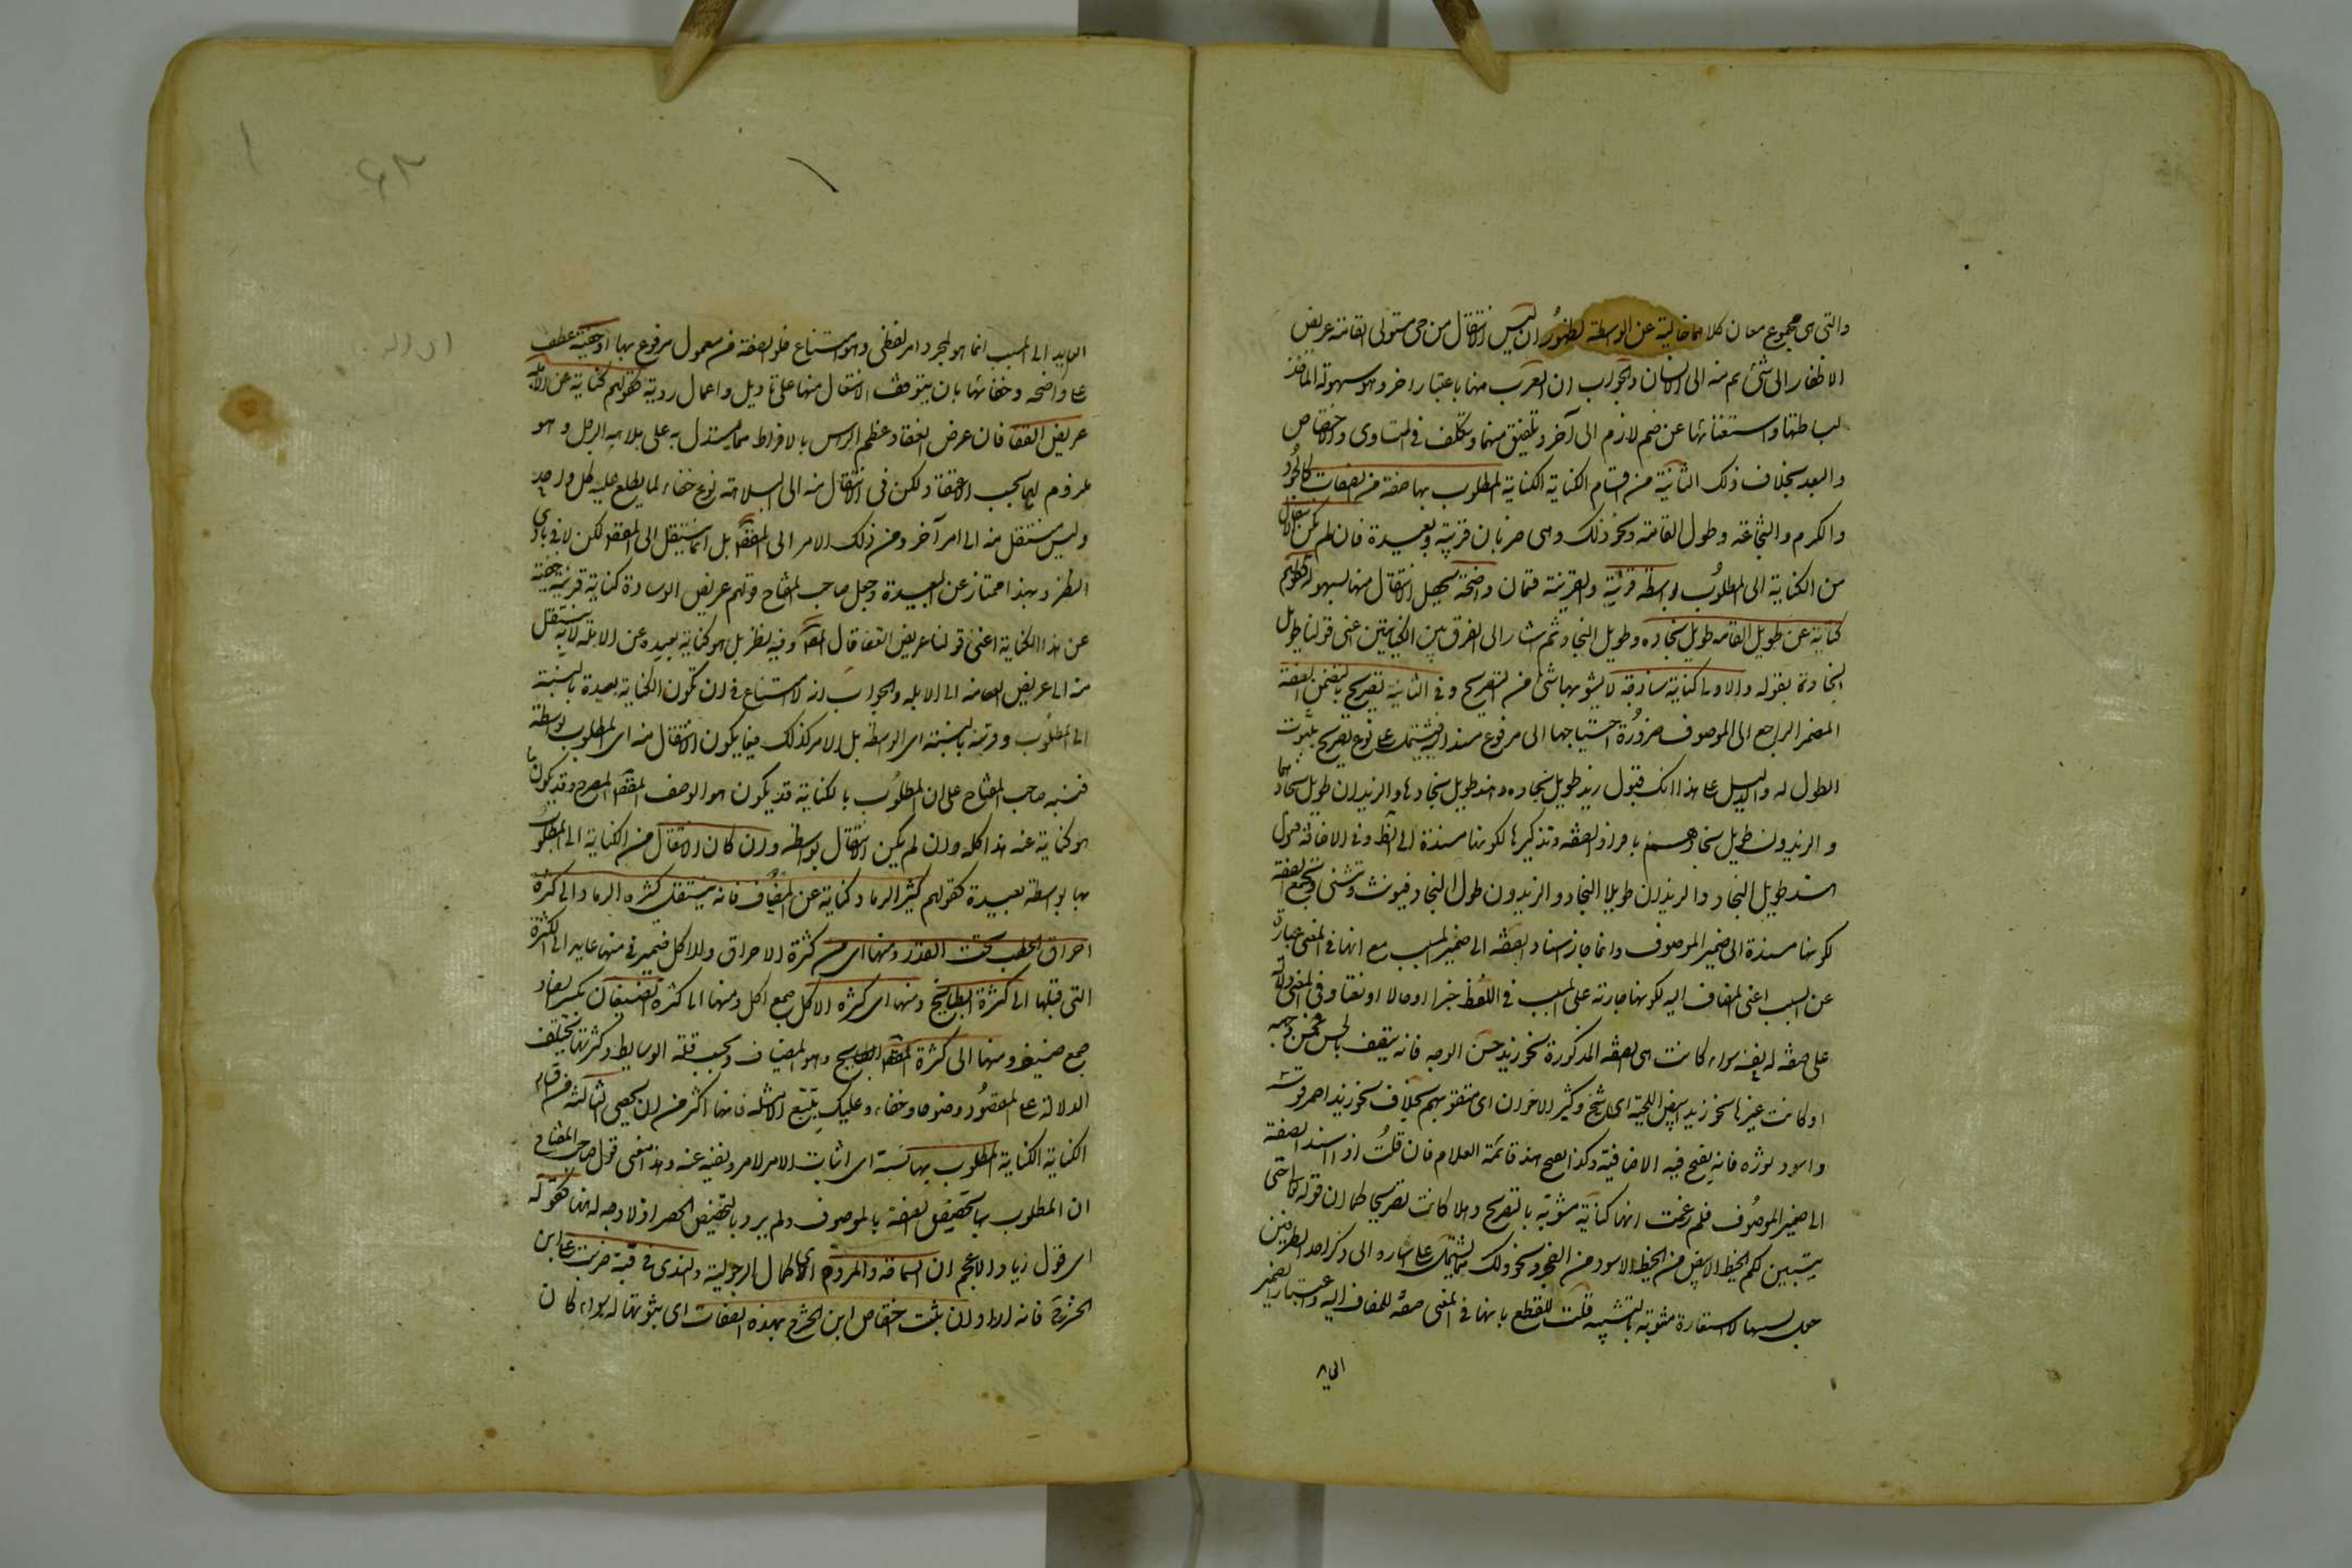 والتى هى مجموع معان كلاهما خالية عن الواسطة لظهور ان ليس الانتقال من حى مستوى القامة عريض
الاظفار الى شئ ثم منه الى الانسان والجواب ان القرب هنا باعتبار اخر وهو سهولة الماخذ
لبساطتها واستغنائها عن ضم لازم الى آخر وتلفيق بينهما وتكلف فى التساوى والاختصاص
والبعد بخلاف ذلك الثانية من اقسام الكناية الكناية المطلوب بها صفة من الصفات كالجود
والكرم والشجاعة وطول القامة ونحو ذلك وهى ضربان قريبة وبعيدة فان لم يكن الانتقال
من الكناية الى المطلوب بواسطة قريبة والقريبة قسمان واضحة يحصل الانتقال منها بسهولة كقولهم
كناية عن طويل القامة طويل نجاده وطويل النجاد ثم اشار الى الفرق بين الكنايتين اعنى قولنا طويل
النجاد بقوله والاولى كناية ساذجة لا يشوبها شئ من التصريح وفى الثانية تصريح ما لتضمن الصفة
المضمر الراجع الى الموصوف ضرورة احتياجها الى مرفوع مسند اليه فيشتمل على نوع تصريح بثبوت
الطول له والدليل على هذا انك تقول زيد طويل نجاده وهند طويل نجادها والزيدان طويل نجادهما
والزيدون طويل نجادهم بافراد الصفة وتذكيرها لكونها مسندة الى الظاهر وفى الاضافة تقول
هند طويل النجاد والزيدان طويلا النجاد والزيدون طوال النجاد فيونث وتثنى وتجمع الصفة
لكونها مسندة الى ضمير الموصوف وانما جاز اسناد الصفة الى ضمير المسبب مع انها فى المعنى عبارة
عن السبب اعنى المضاف اليه لكونها جارية على المسبب فى اللفظ خبرا او حالا او نعتا وفى المعنى دالة
على صفة له فى نفسه سواء كانت هى الصفة المذكورة نحو زيد حسن الوجه فانه يتصف بالحسن لحسن وجهه
او كانت غيرها نحو زيد ابيض اللحية اى شيخ وكثير الاخوان اى متقو بهم بخلاف نحو زيد احمر فرسه
واسود ثوره فانه يقبح فيه الاضافة وكذا يقبح هند قائمة الغلام فان قلت اذا اسند الصفة
الى ضمير الموصوف فلم زعمت انها كناية مشوبة بالتصريح وهلا كانت تصريحا كما ان قوله تعالى حتى
يتبين لكم الخيط الابيض من الخيط الاسود من الفجر ونحو ذلك مما يشتمل على اشارة الى ذكر احد الطرفين
جعل تشبيها لا استعارة مشوبة بالتشبيه قلت للقطع بانها فى المعنى صفة للمضاف اليه واعتبار الضمير
العايد الى المسبب انما هو لمجرد امر لفظى وهو امتناع خلو الصفة من معمول مرفوع بها او خفية عطف
على واضحة وخفائها بان يتوقف الانتقال منها على تاويل واعمال روية كقولهم كناية عن الابله
عريض القفا فان عرض القفا وعظم الراس بالافراط مما يستدل به على بلاهة الرجل وهو
ملزوم لها بحسب الاعتقاد لكن فى الانتقال منه الى البلاهة نوع خفاء لا يطلع عليه كل واحد
وليس ينتقل منه الى امر آخر ومن ذلك الامر الى المقصود بل انما ينتقل الى المقصود لكن لا فى بادى
النظر وبهذا امتاز عن البعيدة وجعل صاحب المفتاح قولهم عريض الوسادة كناية قريبة خفية
عن هذا الكناية اعنى قولنا عريض القفا قال المصنف وفيه نظر بل هو كناية بعيدة عن الابله لانه ينتقل
منه الى عريض القفا ومنه الى الابله والجواب انه لا امتناع فى ان تكون الكناية بعيدة بالنسبة
الى المطلوب وقريبة بالنسبة الى الواسطة بل الامر كذلك فيما يكون الانتقال منه الى المطلوب بواسطة
فنبه صاحب المفتاح على ان المطلوب بالكناية قد يكون هو الوصف المقصود المصرح وقد يكون ما
هو كناية عنه هذا كله وان لم يكن الانتقال بواسطة وان كان الانتقال من الكناية الى المطلوب
بها بواسطة فبعيدة كقولهم كثير الرماد كناية عن المضياف فانه ينتقل من كثرة الرماد الى كثرة
احراق الحطب تحت القدر ومنها اى من كثرة الاحراق وللاكل ضمير فى منها عايد الى الكثرة
التى قبلها الى كثرة الطبايخ ومنها الى كثرة الاكل جمع آكل ومنها الى كثرة الضيفان بكسر الضاد
جمع ضيف ومنها الى كثرة المقصود وهو المضياف وبحسب قلة الوسايط وكثرتها يختلف
الدلالة على المقصود وضوحا وخفاء وعليك بتتبع الامثلة فانها اكثر من ان يحصى الثالثة من اقسام
الكناية الكناية المطلوب بها نسبة اى اثبات الامر لامر او نفيه عنه وهذا معنى قول صاحب المفتاح
ان المطلوب بها تخصيص الصفة بالموصوف ولم يرد بالتخصيص الحصر اذ لا وجه له ههنا كقوله
اى قول زياد الاعجم ان السماحة والمروة اى كمال الرجولية والندى فى قبة ضربت على ابن
الحشرج فانه اراد ان يثبت اختصاص ابن الحشرج بهذه الصفات اى ثبوتها له سواء كان